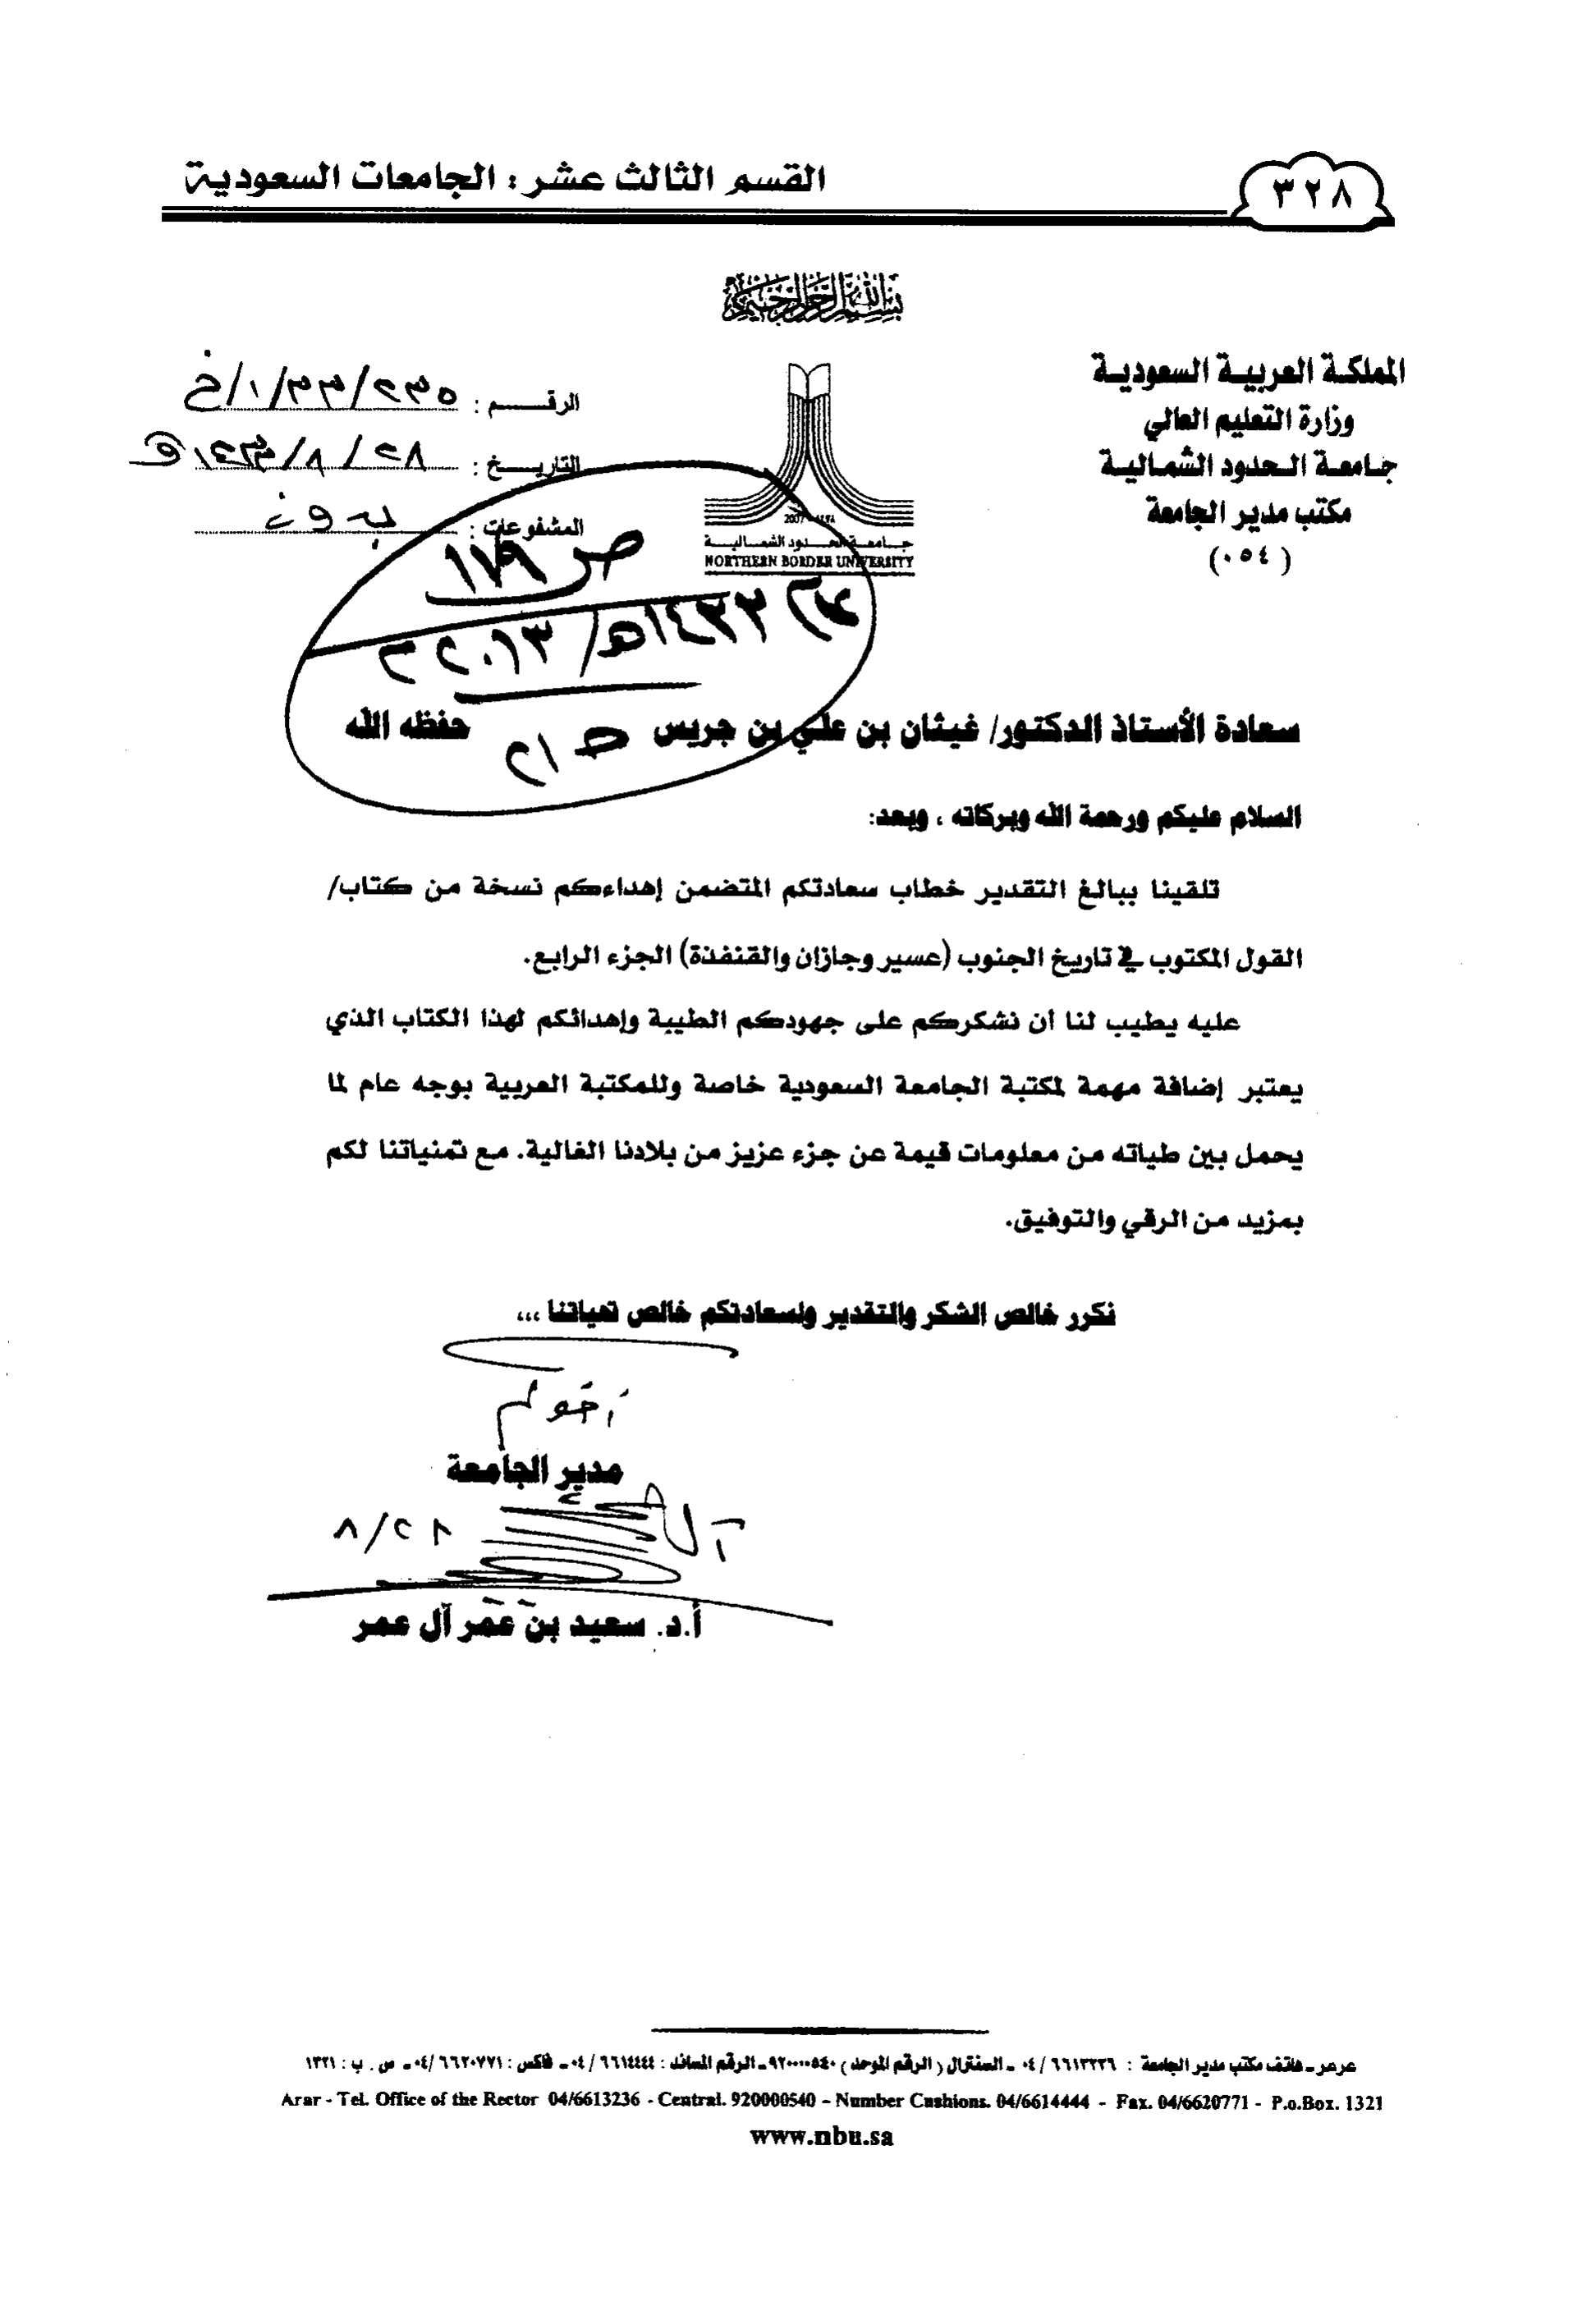 القسم الثالث عشر : الجامعات السعودية
٣٢٨
بسم الله الرحمن الرحيم
المملكة العربية السعودية
وزارة التعليم العالي
جامعة الحدود الشمالية
مكتب مدير الجامعة
(٠٥٤)
جامعة الحدود الشمالية
NORTHERN BORDER UNIVERSITY
الرقم :
التاريخ :
المشفوعات : بدون
ص ١٧٩
سعادة الأستاذ الدكتور/ غيثان بن علي بن جريس حفظه الله
السلام عليكم ورحمة الله وبركاته ، وبعد:
تلقينا ببالغ التقدير خطاب سعادتكم المتضمن إهداءكم نسخة من كتاب/
القول المكتوب في تاريخ الجنوب (عسير وجازان والقنفذة) الجزء الرابع.
عليه يطيب لنا أن نشكركم على جهودكم الطيبة وإهدائكم لهذا الكتاب الذي
يعتبر إضافة مهمة لمكتبة الجامعة السعودية خاصة وللمكتبة العربية بوجه عام لما
يحمل بين طياته من معلومات قيمة عن جزء عزيز من بلادنا الغالية. مع تمنياتنا لكم
بمزيد من الرقي والتوفيق.
نكرر خالص الشكر والتقدير ولسعادتكم خالص تحياتنا ...
أخوكم
مدير الجامعة
أ.د. سعيد بن عمر آل عمر
عرعر ـ هاتف مكتب مدير الجامعة : ٦٦١٣٢٣٦ / ٠٤ ـ السنترال ( الرقم الموحد ) ٩٢٠٠٠٠٥٤٠ ـ الرقم المساند : ٦٦١٤٤٤٤ / ٠٤ ـ فاكس : ٦٦٢٠٧٧١ /٠٤ ـ ص . ب : ١٣٢١
Arar - Tel. Office of the Rector 04/6613236 - Central. 920000540 - Number Cushions. 04/6614444 - Fax. 04/6620771 - P.o.Box. 1321
www.nbu.sa